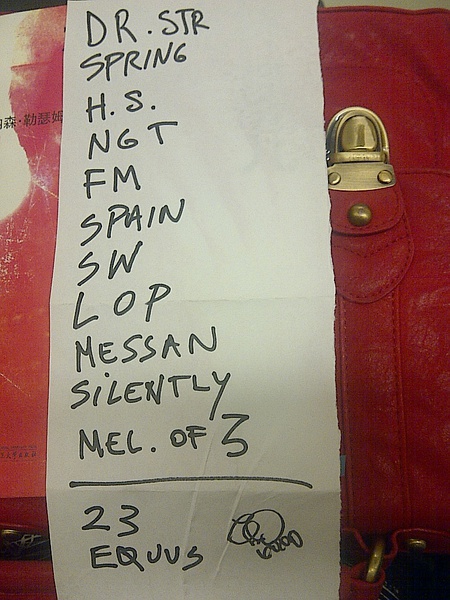 DR. STR
SPRING
H.S.
NGT
FM
SPAIN
SW
LOP
MESSAN
SILENTLY
MEL. OF 3
23
EQUUS
森·勒瑟姆